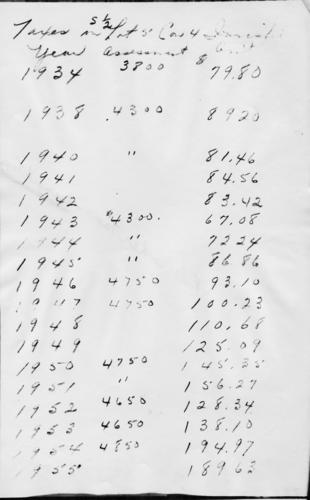 Taxes on S ½ Lot 5 Con 4
Year Assessment
1934 3800 $79.80
1938 4300 8920
1940 " 81.46
1941 84.56
1942 83.42
1943 $4300. 67.08
1944 " 7224
1945 " 86.86
1946 4750 93.10
1947 4750 100.23
1948 110.68
1949 125.09
1950 4750 145.35
1951 " 156.27
1952 4650 128.34
1953 4650 138.10
1954 4850 194.97
1955 18963